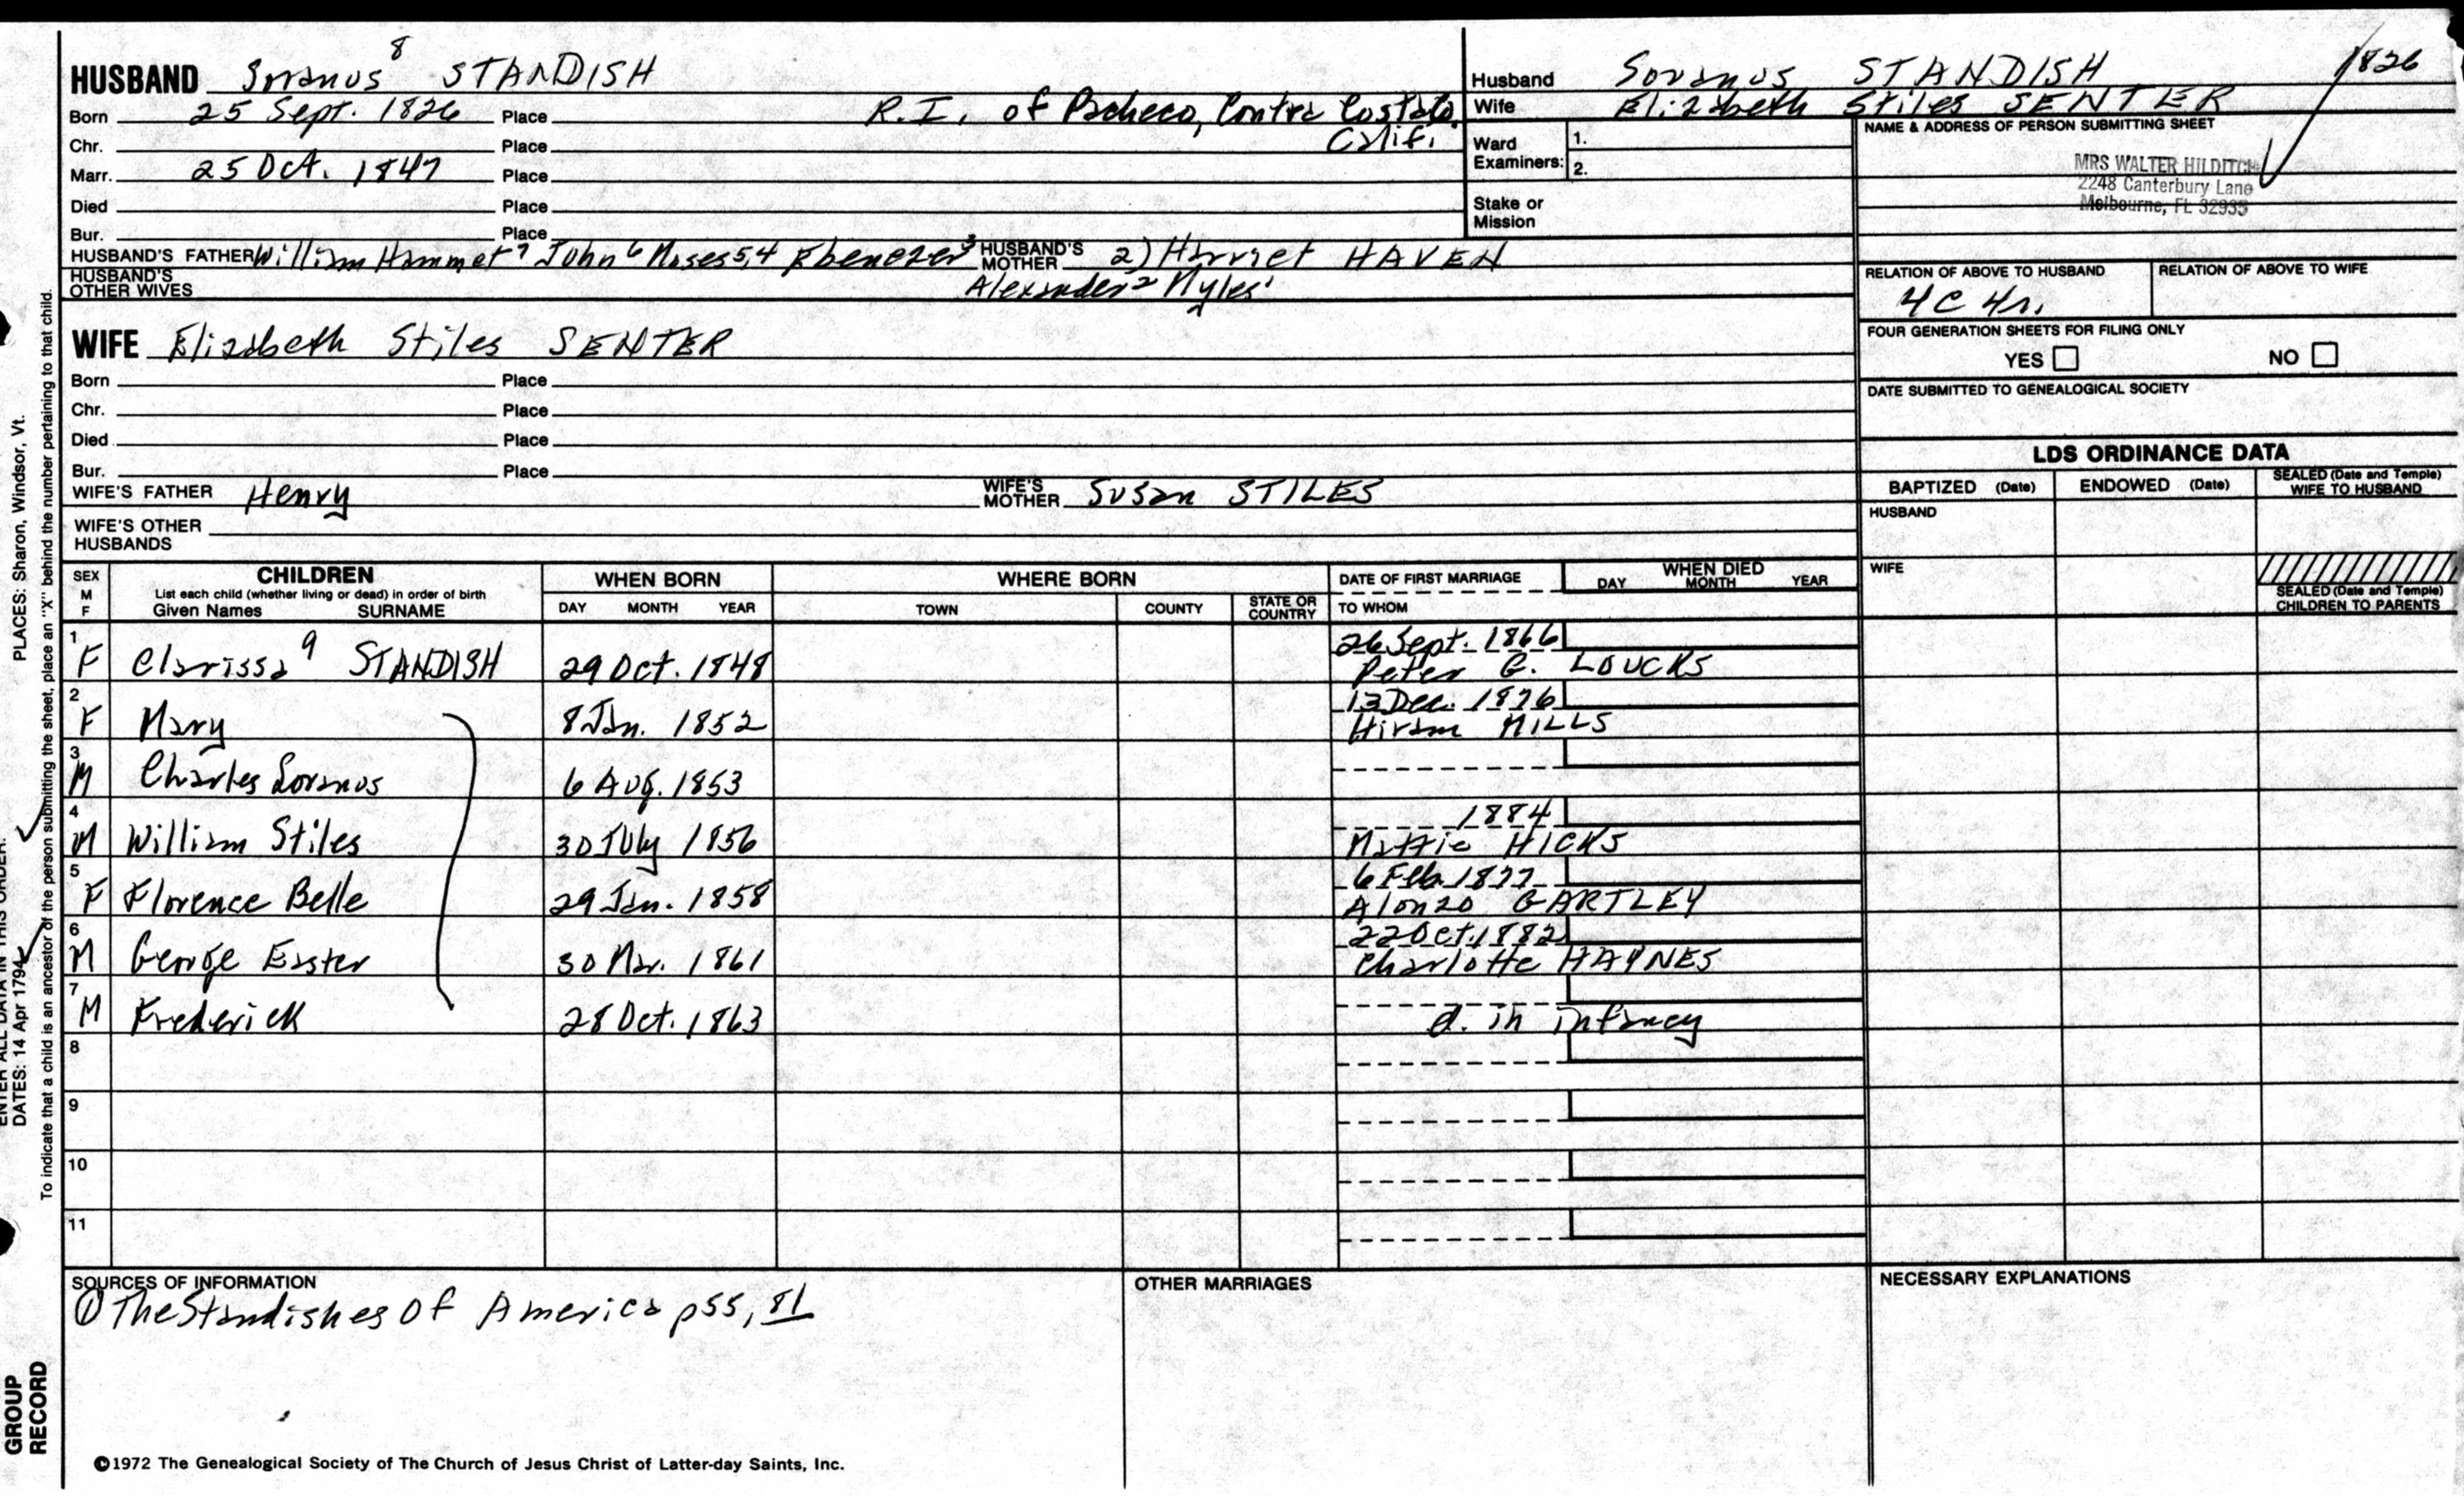 HUSBAND Soranus 8 STANDISH
Born 25 Sept. 1826 Place R.I. of Pacheco, Contra Costa Co. Calif.
Chr. Place
Marr. 25 Oct. 1847 Place
Died Place
Bur. Place
HUSBAND'S FATHER William Hammet 7 John 6 Moses 5,4 Ebenezer 3 HUSBAND'S MOTHER 2) Harriet HAVEN
HUSBAND'S OTHER WIVES Alexander 2 Myles 1
Husband Soranus STANDISH 1826
Wife Elizabeth Stiles SENTER
Ward Examiners: 1.
2.
Stake or Mission
NAME & ADDRESS OF PERSON SUBMITTING SHEET
MRS WALTER HILDITCH
2248 Canterbury Lane
Melbourne, FL 32935
RELATION OF ABOVE TO HUSBAND RELATION OF ABOVE TO WIFE
4C 4r.
FOUR GENERATION SHEETS FOR FILING ONLY
YES NO
DATE SUBMITTED TO GENEALOGICAL SOCIETY
WIFE Elizabeth Stiles SENTER
Born Place
Chr. Place
Died Place
Bur. Place
WIFE'S FATHER Henry WIFE'S MOTHER Susan STILES
WIFE'S OTHER HUSBANDS
LDS ORDINANCE DATA
BAPTIZED (Date) ENDOWED (Date) SEALED (Date and Temple) WIFE TO HUSBAND
HUSBAND
WIFE
SEALED (Date and Temple) CHILDREN TO PARENTS
SEX M F CHILDREN WHEN BORN WHERE BORN DATE OF FIRST MARRIAGE WHEN DIED
List each child (whether living or dead) in order of birth
Given Names SURNAME DAY MONTH YEAR TOWN COUNTY STATE OR COUNTRY TO WHOM DAY MONTH YEAR
1 26 Sept. 1866
F Clarissa 9 STANDISH 29 Oct. 1848 Peter G. LOUCKS
2 13 Dec. 1876
F Mary 8 Jan. 1852 Hiram MILLS
3
M Charles Soranus 6 Aug. 1853
4 1884
M William Stiles 30 July 1856 Mattie HICKS
5 6 Feb. 1877
F Florence Belle 29 Jan. 1858 Alonzo GARTLEY
6 22 Oct. 1882
M George Easter 30 Mar. 1861 Charlotte HAYNES
7
M Frederick 28 Oct. 1863 d. in infancy
8
9
10
11
SOURCES OF INFORMATION
① The Standishes of America p 55, 81
OTHER MARRIAGES
NECESSARY EXPLANATIONS
©1972 The Genealogical Society of The Church of Jesus Christ of Latter-day Saints, Inc.
ENTER ALL DATA IN THIS ORDER:
DATES: 14 Apr 1794 PLACES: Sharon, Windsor, Vt.
To indicate that a child is an ancestor of the person submitting the sheet, place an "X" behind the number pertaining to that child.
GROUP
RECORD